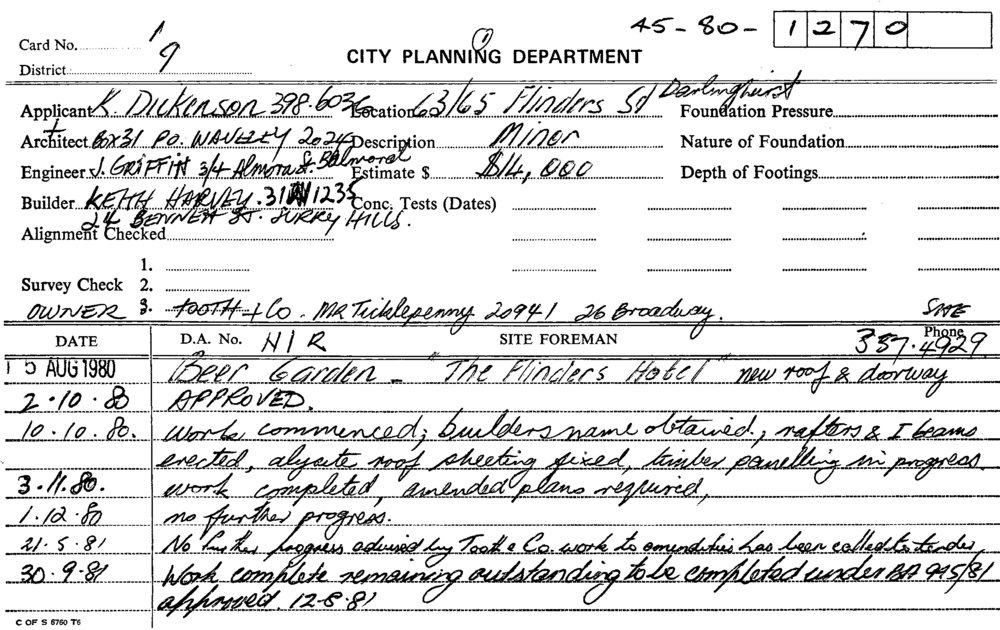 45-80-1270
Card No. 1
District 9
CITY PLANNING DEPARTMENT
Applicant K. Dickenson 398.6036 Location 63/65 Flinders St Darlinghurst Foundation Pressure
Architect Box 31 PO. WAVELEY 2024 Description Minor Nature of Foundation
Engineer J. GRIFFIN 3/4 Almora St. Balmoral Estimate $ $14,000 Depth of Footings
Builder KEITH HARVEY. 31 1235 Conc. Tests (Dates)
24 BENNETT ST. SURRY HILLS.
Alignment Checked
1.
Survey Check 2.
OWNER 3. TOOTH + Co. Mr Ticklepenny 20941 26 Broadway. SITE
DATE D.A. No. NIR SITE FOREMAN Phone 337.4929
15 AUG 1980 Beer Garden - "The Flinders Hotel" new roof & doorway
2.10.80 APPROVED.
10.10.80. work commenced; builders name obtained, rafters & I beams
erected, alysite roof sheeting fixed, timber panelling in progress
3.11.80. work completed, amended plans required,
1.12.80 no further progress.
21.5.81 No further progress advised by Tooth & Co. work to amendities has been called to tender
30.9.81 Work complete remaining outstanding to be completed under BA 995/81
approved. 12-8-81
C OF S 6760 T6